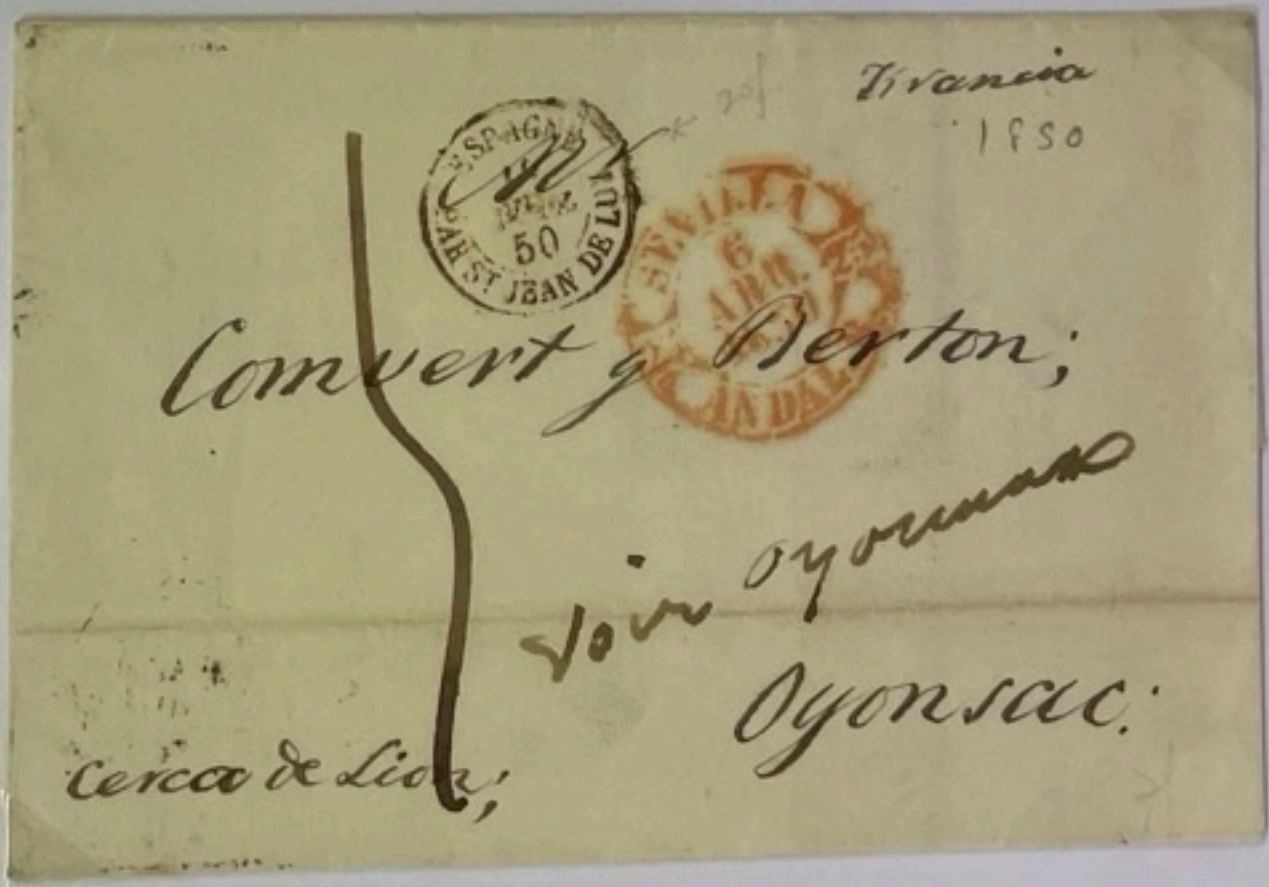 Francia
1850
ESPAGNE
AVRIL
50
PAR ST JEAN DE LUZ
SEVILLA
6
ABR.
1850
ANDAL.
Comvert y Berton;
voir oyonnax
Oyonsac.
cerca de Lion;